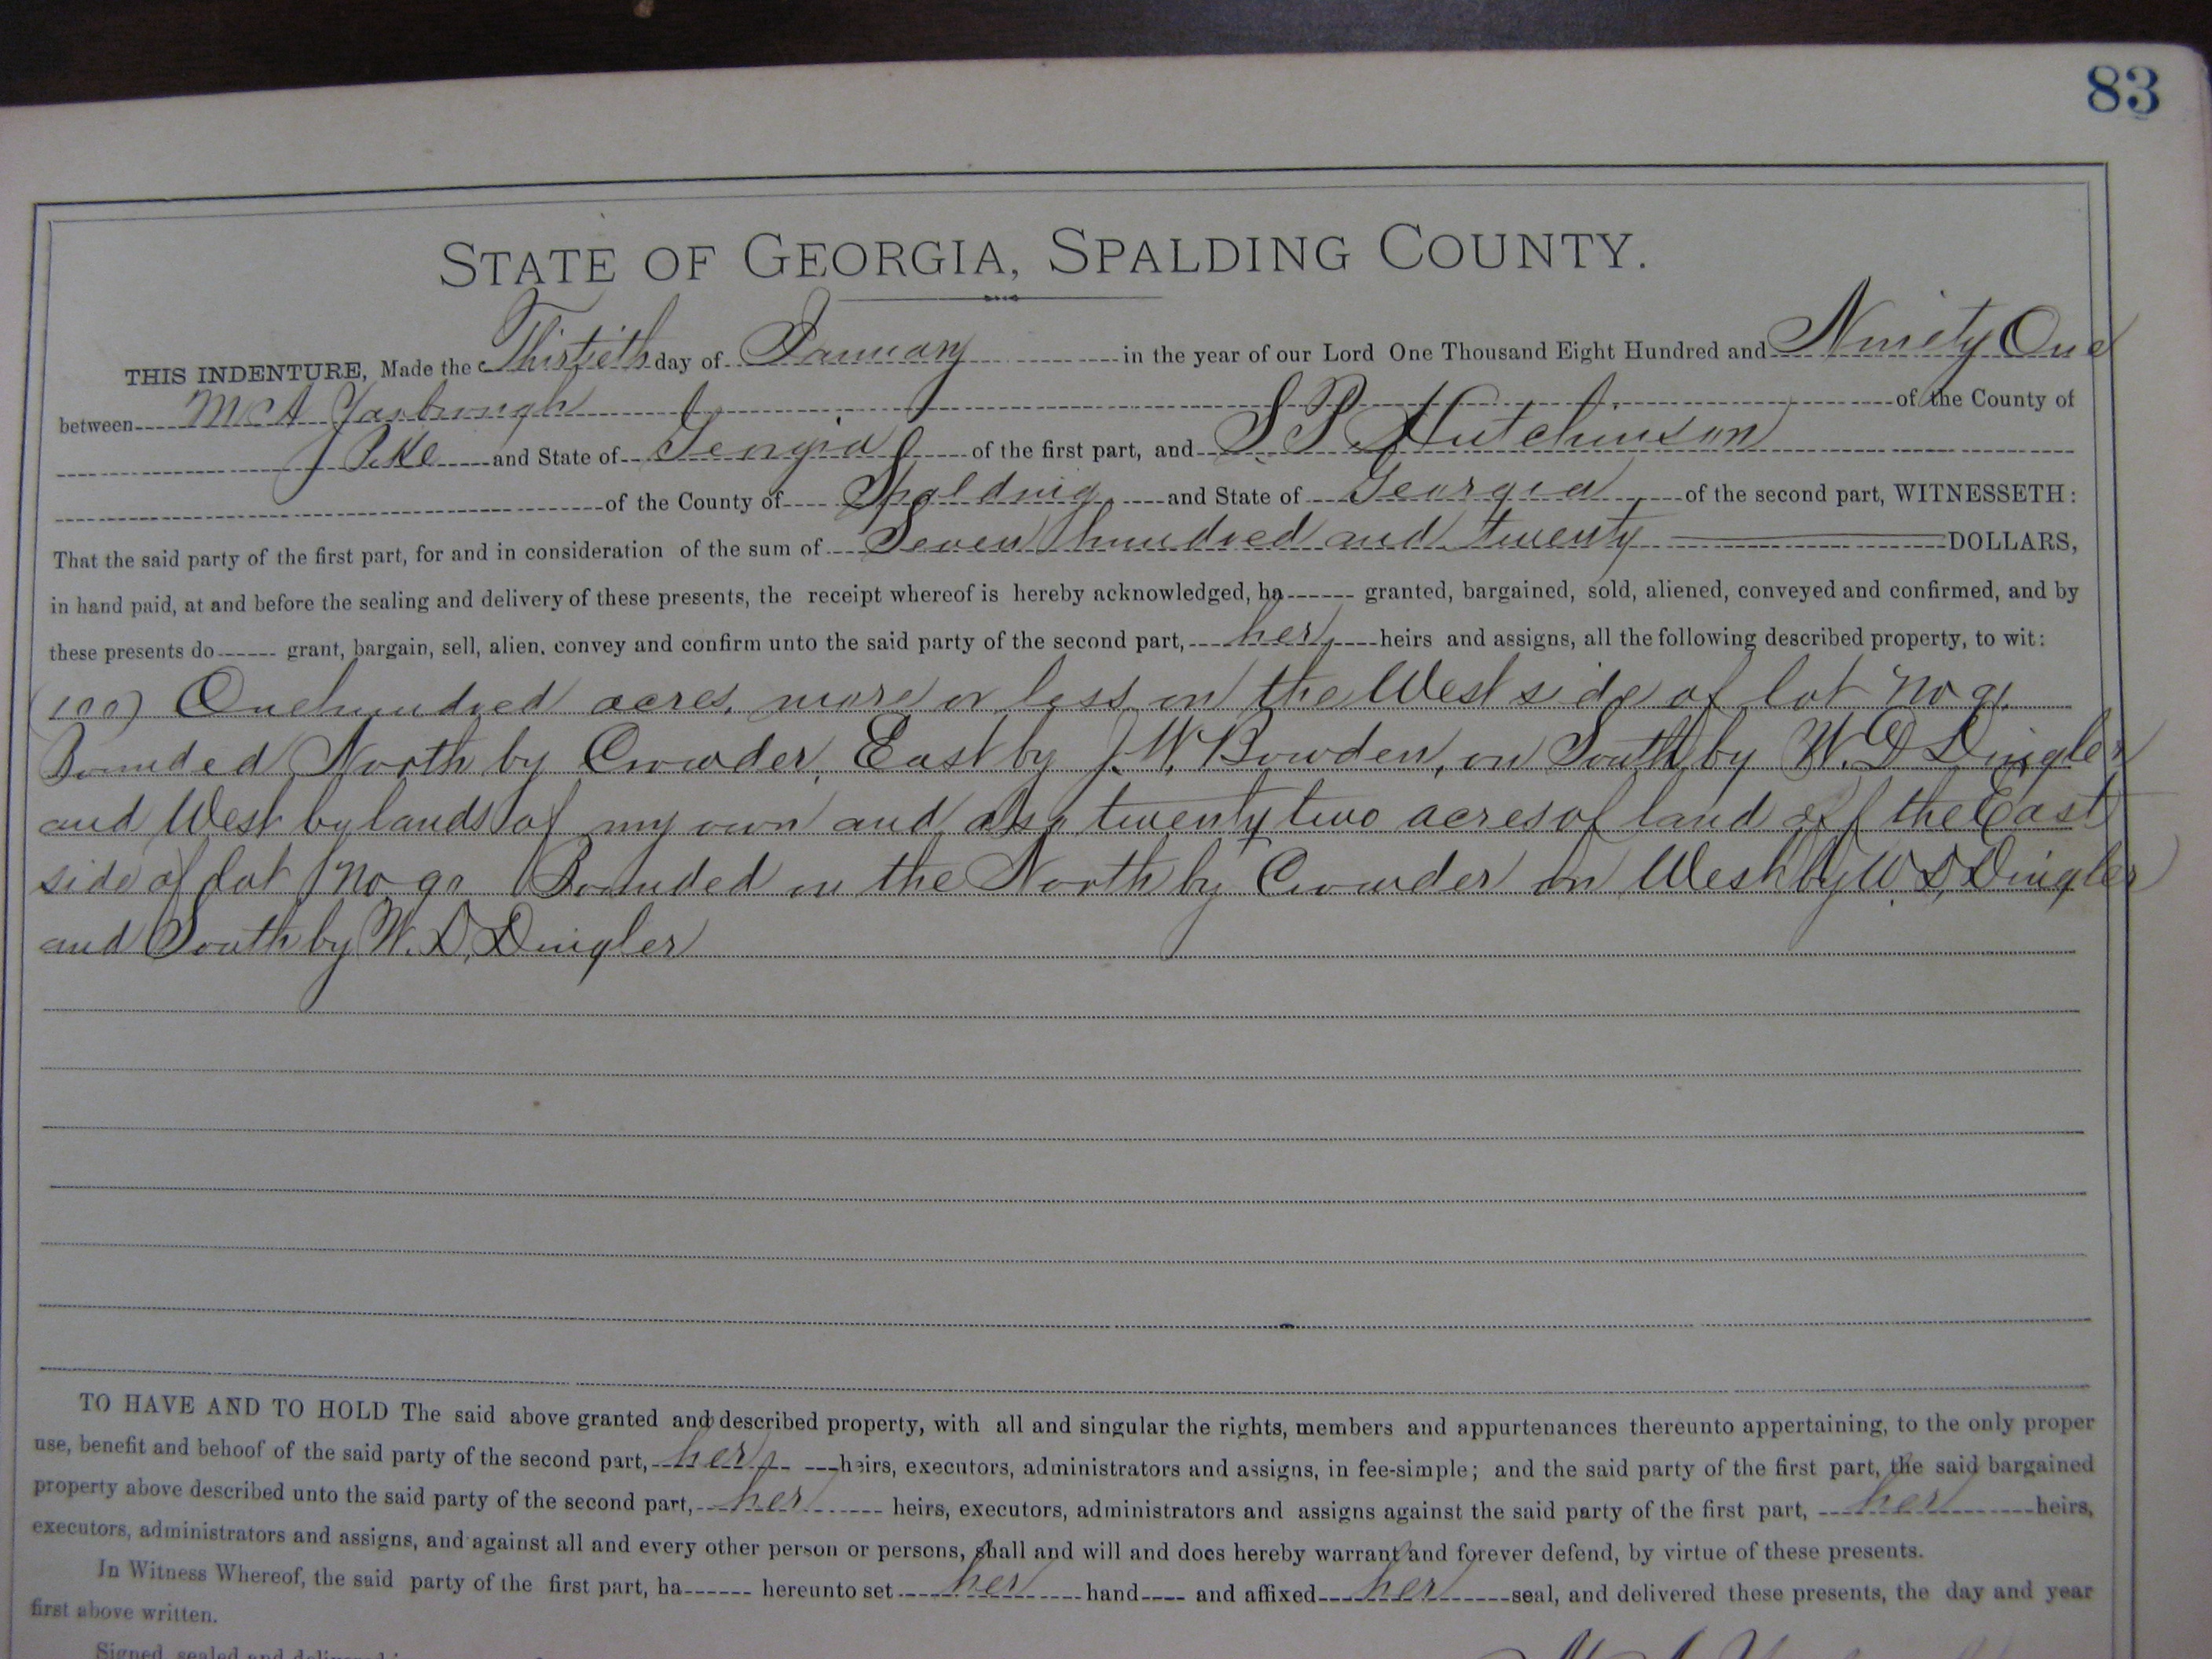 83
STATE OF GEORGIA, SPALDING COUNTY.
THIS INDENTURE, Made the Thirtieth day of January in the year of our Lord One Thousand Eight Hundred and Ninety One
between M A Yarbrough of the County of
Pike and State of Georgia of the first part, and S P. Hutchinson
of the County of Spalding and State of Georgia of the second part, WITNESSETH:
That the said party of the first part, for and in consideration of the sum of Seven hundred and twenty DOLLARS,
in hand paid, at and before the sealing and delivery of these presents, the receipt whereof is hereby acknowledged, ha granted, bargained, sold, aliened, conveyed and confirmed, and by
these presents do grant, bargain, sell, alien, convey and confirm unto the said party of the second part, her heirs and assigns, all the following described property, to wit:
(100) One hundred acres, more or less on the West side of lot No 91.
Bounded North by Crowder, East by J. W. Bowden, on South by W. D Dingler
and West by lands of my own and also twenty two acres of land off the East
side of lot No 90 Bounded on the North by Crowder on West by W. D, Dingler
and South by W. D, Dingler
TO HAVE AND TO HOLD The said above granted and described property, with all and singular the rights, members and appurtenances thereunto appertaining, to the only proper
use, benefit and behoof of the said party of the second part, her heirs, executors, administrators and assigns, in fee-simple; and the said party of the first part, the said bargained
property above described unto the said party of the second part, her heirs, executors, administrators and assigns against the said party of the first part, her heirs,
executors, administrators and assigns, and against all and every other person or persons, shall and will and does hereby warrant and forever defend, by virtue of these presents.
In Witness Whereof, the said party of the first part, ha hereunto set her hand and affixed her seal, and delivered these presents, the day and year
first above written.
Signed, sealed and delivered